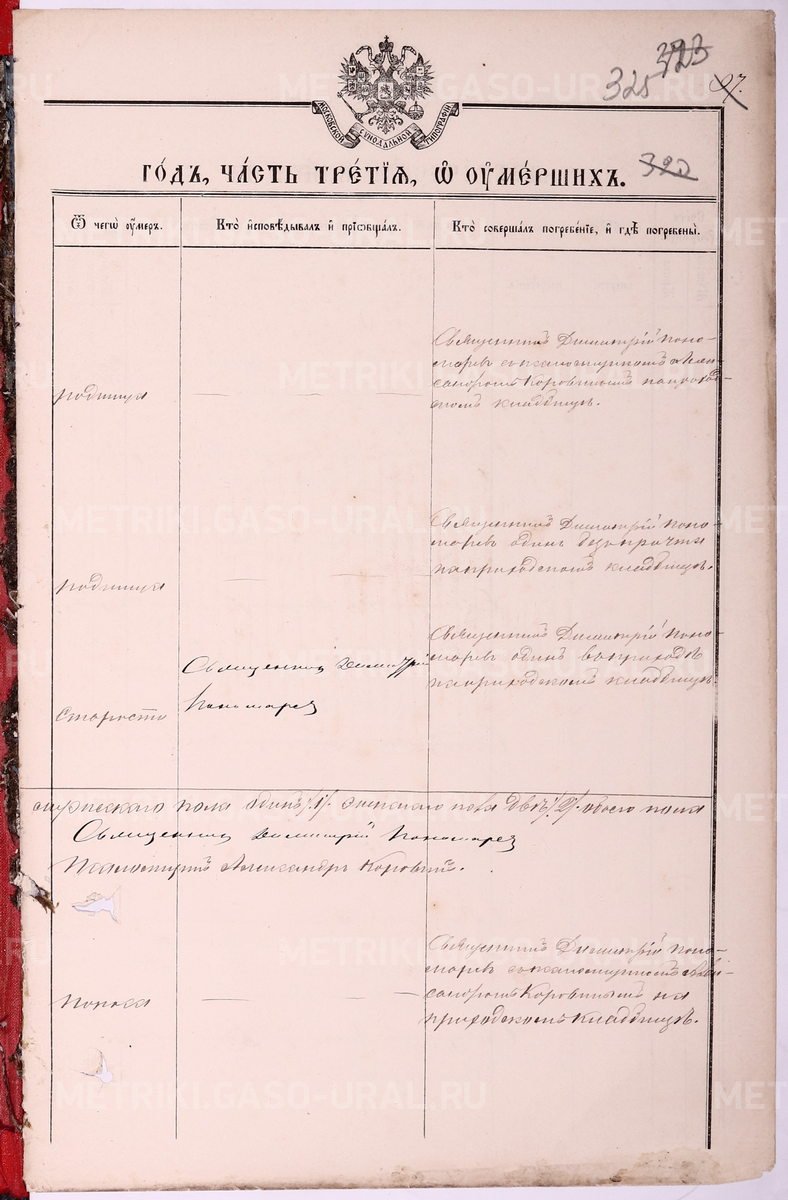 323
325
97.
МОСКОВСКОЙ СѴНОДАЛЬНОЙ ТИПОГРАФІИ
322
ГО́ДЪ, ЧА́СТЬ ТРЕ́ТІѦ, Ѡ҆ ОУ҆МЕ́РШИХЪ.
Ѿ чегѡ̀ оу҆́меръ.
Кто̀ и҆сповѣ́дывалъ и҆ прїѡбща́лъ.
Кто̀ соверша́лъ погребе́нїе, и҆ гдѣ̀ погребены̀.
родимца
Священникъ Димитрій Поно-
маревъ съ псаломщикомъ Алек-
сандромъ Коровинымъ на приход-
скомъ кладбищѣ.
родимца
Священникъ Димитрій Поно-
маревъ одинъ безъ причта
на приходскомъ кладбищѣ.
Старости
Священник Димитрій
Пономарев
Священникъ Димитрій Поно-
маревъ одинъ
на приходскомъ кладбищѣ.
мужескаго пола одинъ /1/. женскаго пола двѣ /2/. обоего пола
Священник Димитрій Пономарев
Псаломщикъ Александръ Коровинъ.
поноса
Священникъ Димитрій Поно-
маревъ съ псаломщикомъ Алек-
сандромъ Коровинымъ на
приходскомъ кладбищѣ.
METRIKI.GASO-URAL.RU